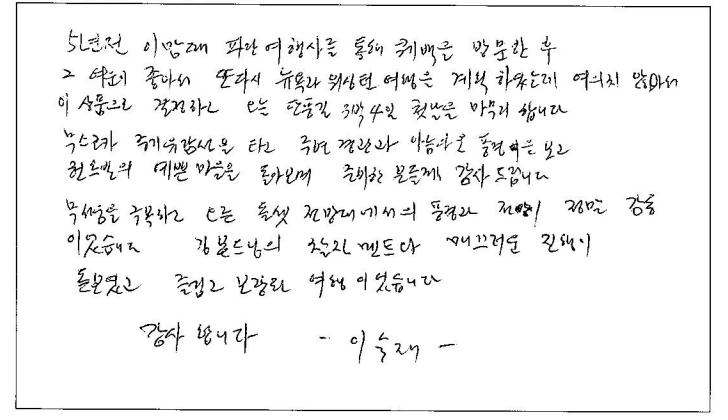 5년전 이맘때 파란여행사를 통해 퀘백을 방문한 후
그 여운이 좋아서 또다시 뉴욕과 워싱턴 여행을 계획 하였는데 여의치 않아서
이 상품으로 결정하고 오는 단풍길 3박4일 첫날을 마무리 합니다
무스코카 증기유람선을 타고 주변 경관과 아름다운 풍경 보고
헌츠빌의 예쁜 마을을 돌아보며 준비한 분들께 감사드립니다
극복하고 오른 돌셋 전망대에서의 풍경과 전망이 정말 감동
이었습니다 김 님의 멘트와 매끄러운 진행이
돋보였고 즐겁고 보람된 여행이었습니다
감사 합니다 - 이숙재 -